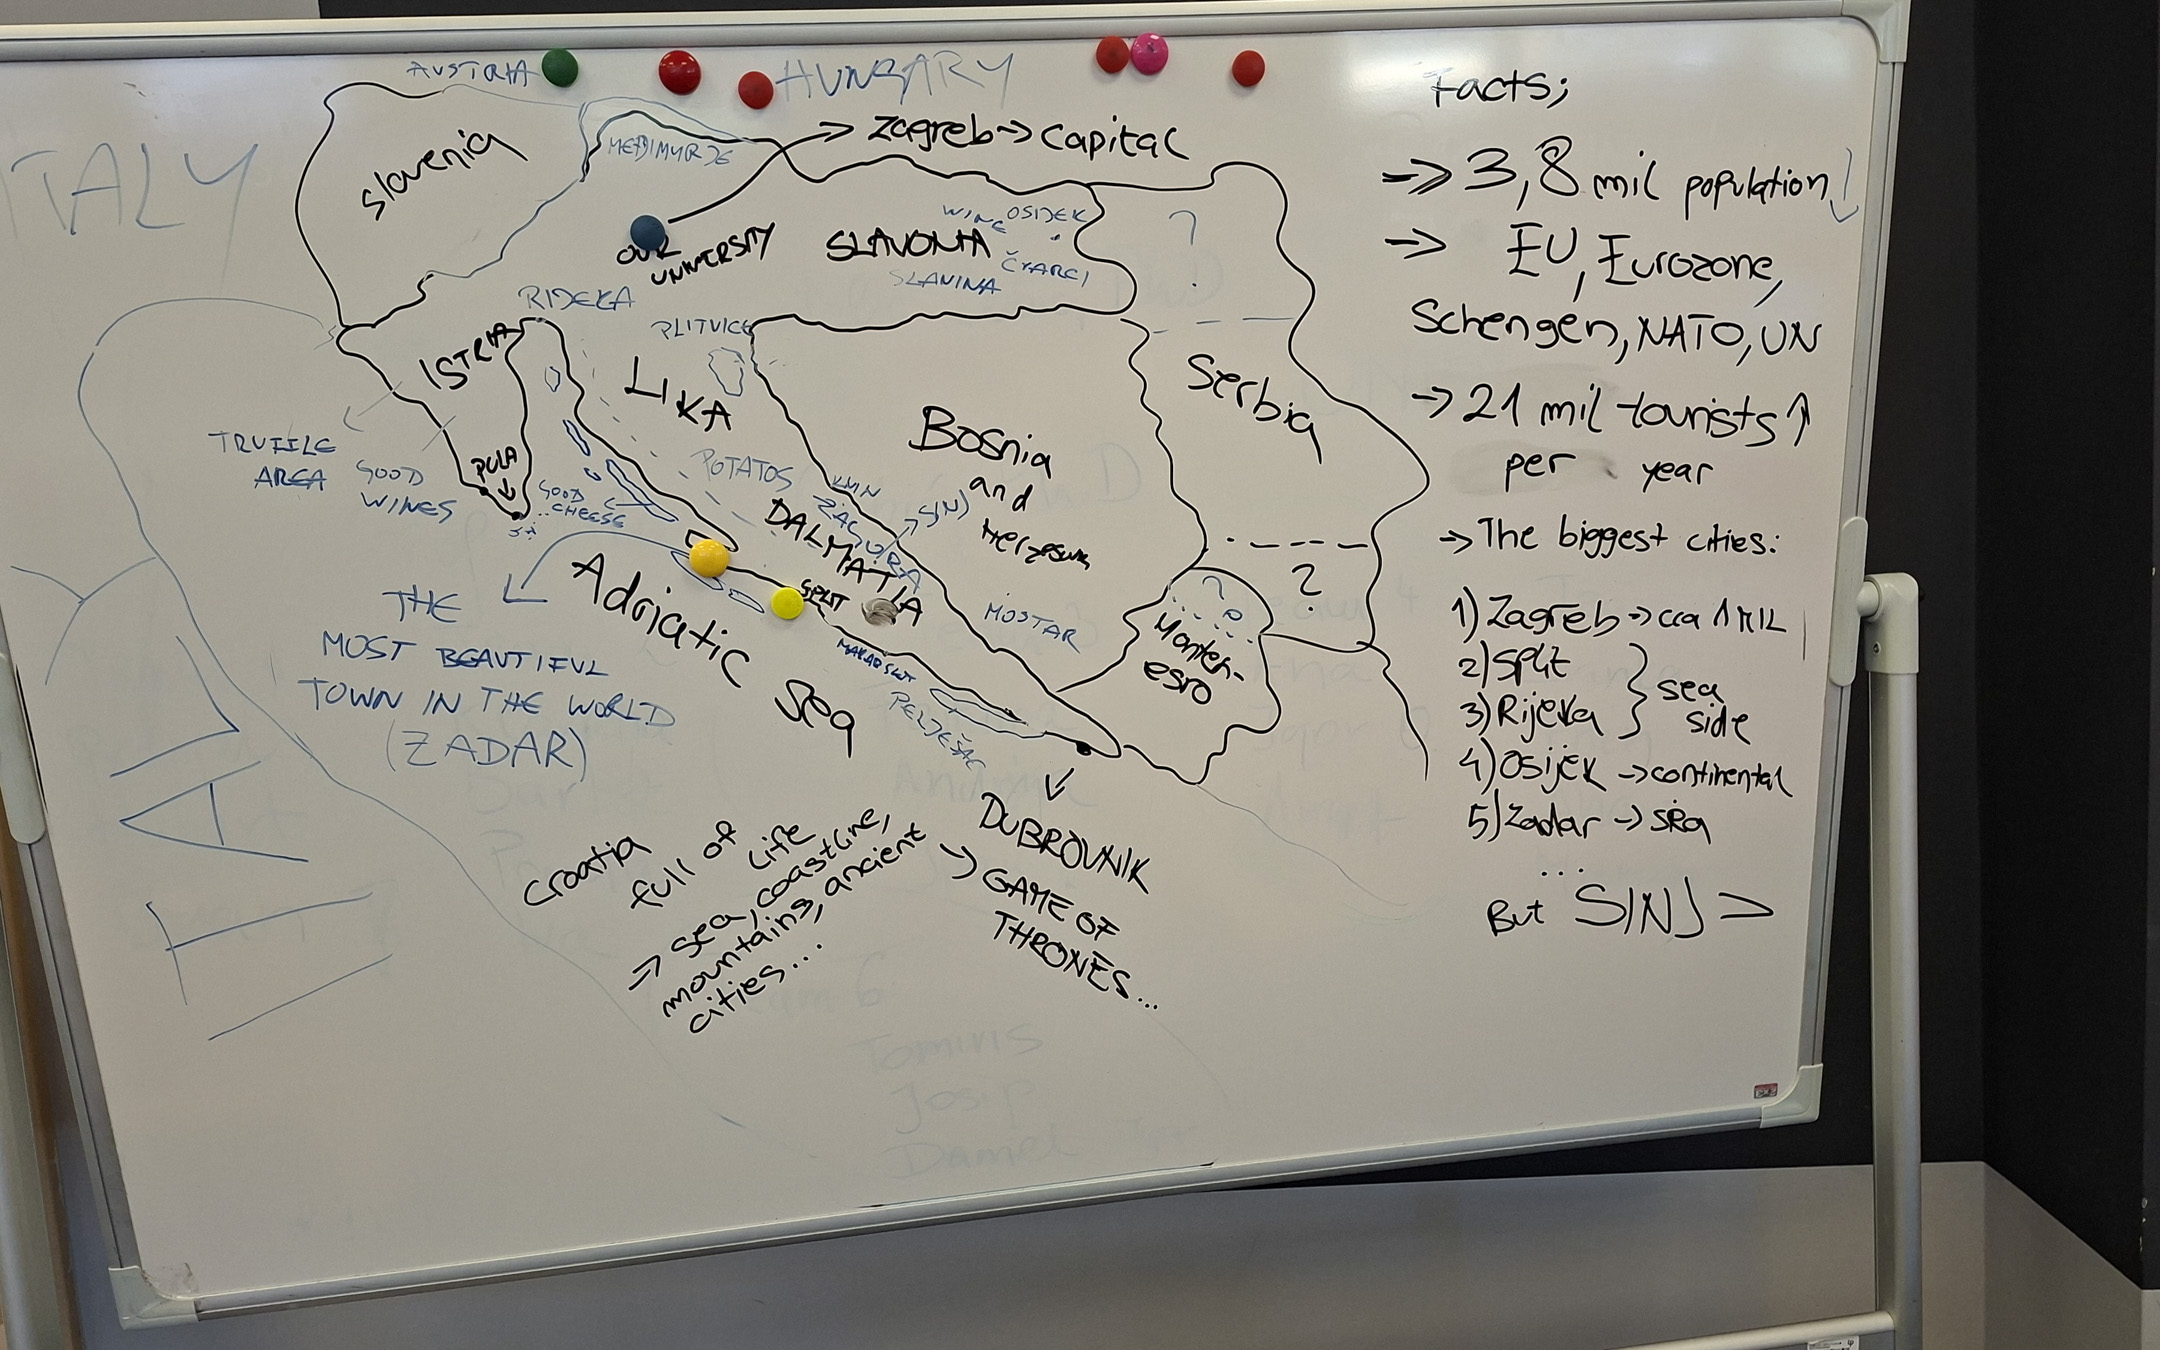 AUSTRIA
HUNGARY
ITALY
Slovenia
MEĐIMURJE
→ Zagreb → capital
OUR
UNIVERSITY
WINE
OSIJEK
SLAVONIA
ČVARCI
SLANINA
?
RIJEKA
PLITVICE
ISTRIA
LIKA
Serbia
Bosnia
and
PULA
TRUFFLE
AREA
GOOD
WINES
GOOD
CHEESE
POTATOS
SINJ
DALMATIA
ZAGORA
SPLIT
MOSTAR
?
?
Adriatic
Sea
PELJEŠAC
THE
MOST BEAUTIFUL
TOWN IN THE WORLD
(ZADAR)
DUBROVNIK
→ GAME OF
THRONES...
Croatia
full of
life
→ sea, coastline,
mountains, ancient
cities...
Facts;
→ 3,8 mil population ↓
→ EU, Eurozone,
Schengen, NATO, UN
→ 21 mil tourists ↑
per year
→ The biggest cities:
1) Zagreb → cca 1 MIL
2) Split
3) Rijeka
} sea
side
4) Osijek → continental
5) Zadar → sea
...
But SINJ >
Tamiris
Josip
Daniel